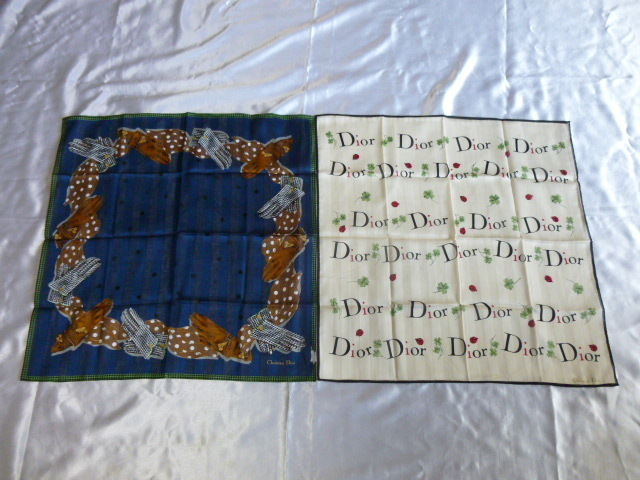 Dior Dior Dior Dior
Dior Dior Dior Dior
Dior Dior Dior Dior
Dior Dior Dior Dior
Dior Dior Dior Dior
Dior Dior Dior Dior
Christian Dior